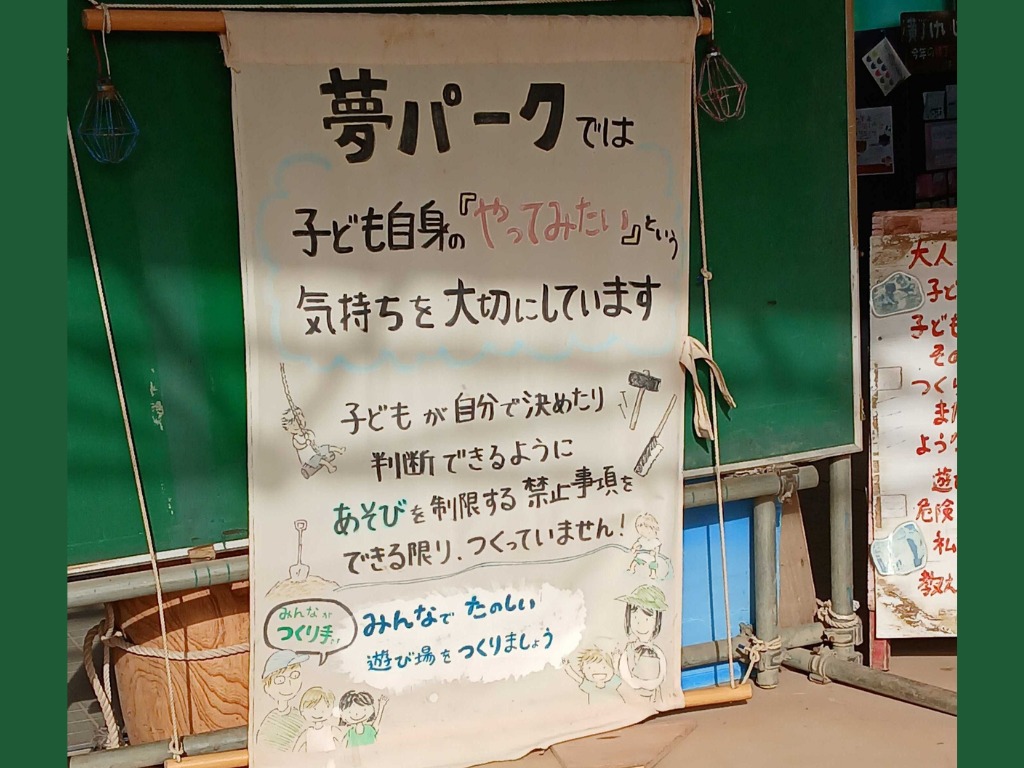 夢パークでは
子ども自身の『やってみたい』という
気持ちを大切にしています
子どもが自分で決めたり
判断できるように
あそびを制限する禁止事項を
できる限り、つくっていません!
みんなが
つくり手です
みんなでたのしい
遊び場をつくりましょう
大人
子ど
子ども
その
つくら
また
よう
遊び
危険
私
教